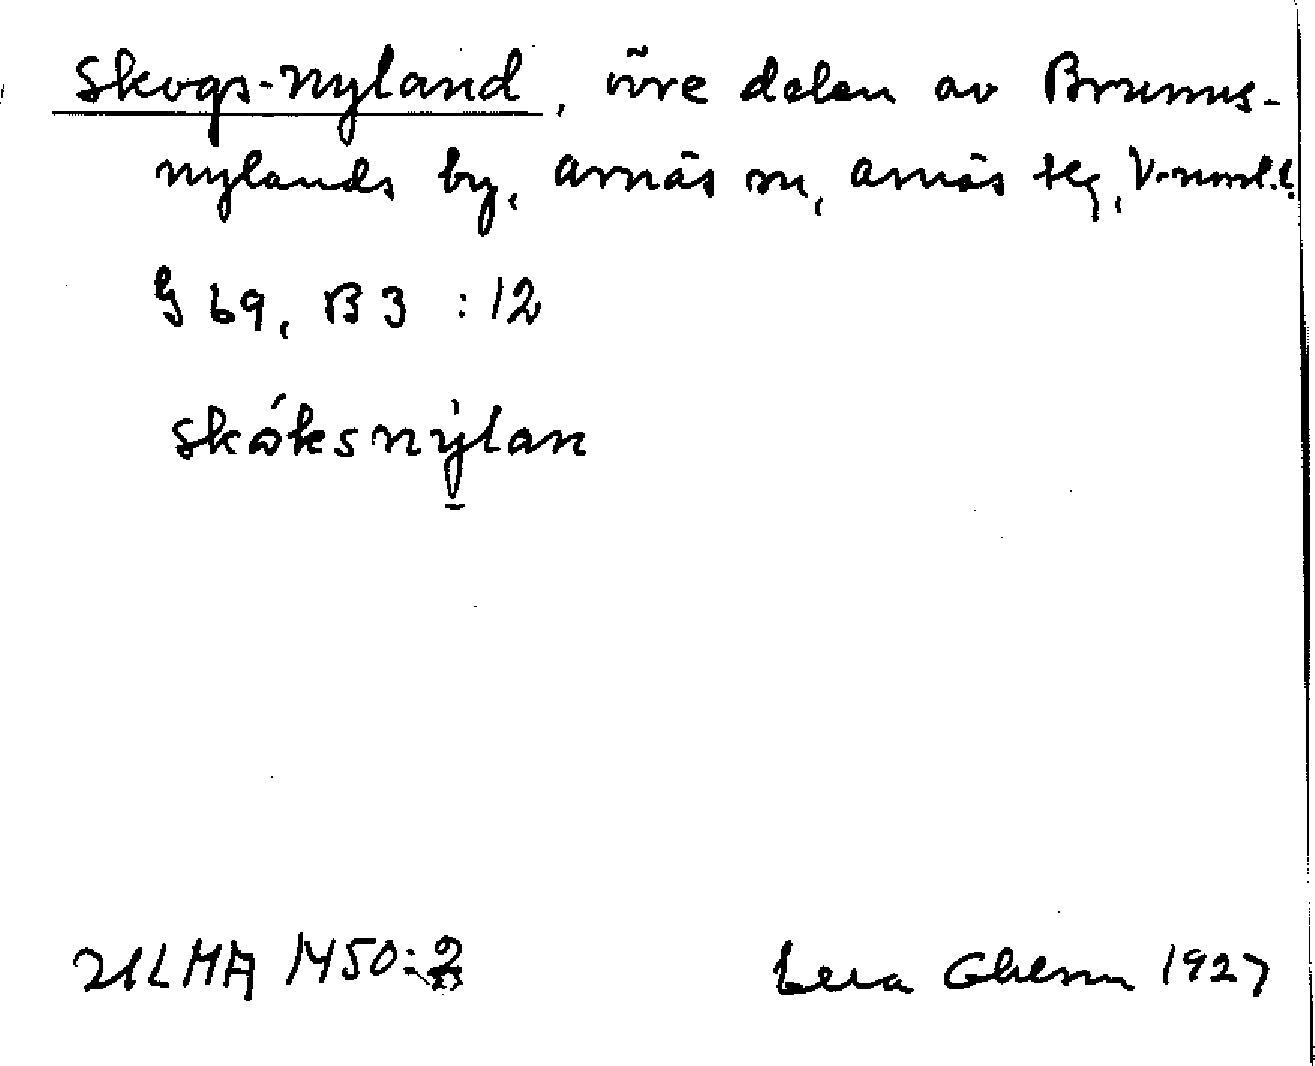 Skogs-Nyland, övre delen av Brunns-
nylands by, Arnäs sn, Arnäs tlg, V-norrl.l.
§ 69, B3 :12
skóksnýlan
ULMA 1450:2 1927